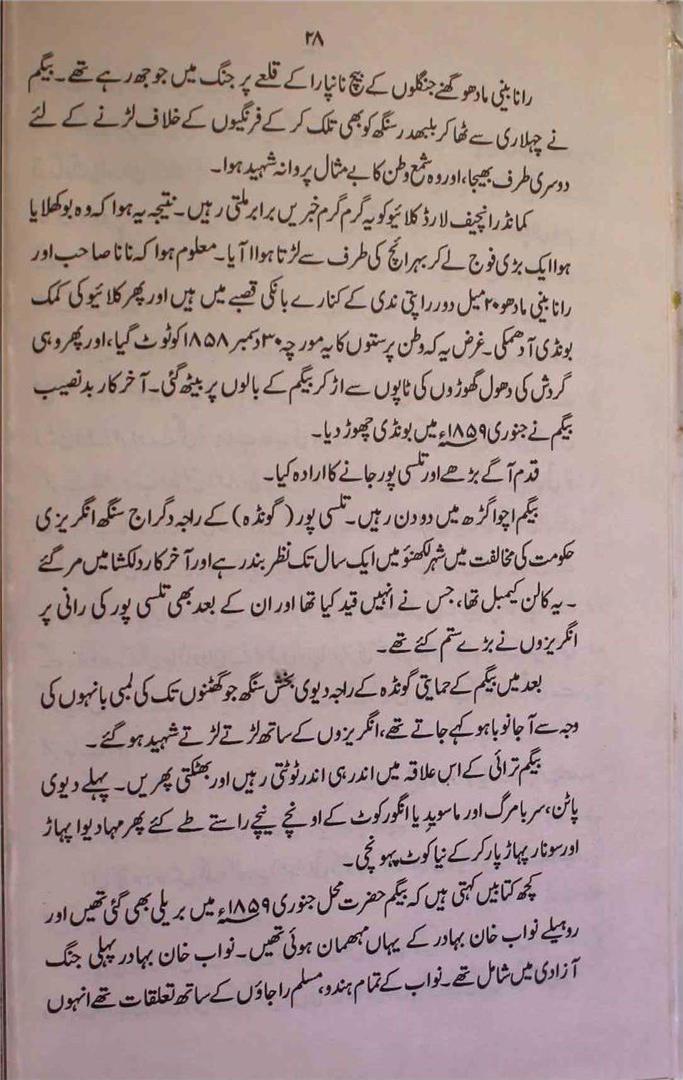 ۲۸
رانا بینی مادھو گھنے جنگلوں کے بیچ نانپارا کے قلعے پر جنگ میں جوجھ رہے تھے۔ بیگم
نے چہلاری سے ٹھاکر بلبھدر سنگھ کو بھی تلک کر کے فرنگیوں کے خلاف لڑنے کے لئے
دوسری طرف بھیجا، اور وہ شمع وطن کا بے مثال پروانہ شہید ہوا۔
کمانڈر انچیف لارڈ کلائیو کو یہ گرم گرم خبریں برابر ملتی رہیں۔ نتیجہ یہ ہوا کہ وہ بوکھلایا
ہوا ایک بڑی فوج لے کر بہرائچ کی طرف سے لڑتا ہوا آیا۔ معلوم ہوا کہ نانا صاحب اور
رانا بینی مادھو ۲۰ میل دور راپتی ندی کے کنارے بانکی قصبے میں ہیں اور پھر کلائیو کی کمک
بونڈی آدھمکی۔ غرض یہ کہ وطن پرستوں کا یہ مورچہ ۳۰ دسمبر ۱۸۵۸ کو ٹوٹ گیا، اور پھر وہی
گردش کی دھول گھوڑوں کی ٹاپوں سے اڑ کر بیگم کے بالوں پر بیٹھ گئی۔ آخر کار بدنصیب
بیگم نے جنوری ۱۸۵۹ء میں بونڈی چھوڑ دیا۔
قدم آگے بڑھے اور تلسی پور جانے کا ارادہ کیا۔
بیگم اچوا گڑھ میں دو دن رہیں۔ تلسی پور (گونڈہ) کے راجہ دگراج سنگھ انگریزی
حکومت کی مخالفت میں شہر لکھنؤ میں ایک سال تک نظر بند رہے اور آخر کار دلکشا میں مر گئے
۔ یہ کالن کیمبل تھا، جس نے انہیں قید کیا تھا اور ان کے بعد بھی تلسی پور کی رانی پر
انگریزوں نے بڑے ستم کئے تھے۔
بعد میں بیگم کے حمایتی گونڈہ کے راجہ دیوی بخش سنگھ جو گھٹنوں تک کی لمبی بانہوں کی
وجہ سے آجانو باہو کہے جاتے تھے، انگریزوں کے ساتھ لڑتے لڑتے شہید ہو گئے۔
بیگم ترائی کے اس علاقہ میں اندر ہی اندر ٹوٹتی رہیں اور بھٹکتی پھریں۔ پہلے دیوی
پاٹن، سربا مرگ اور ماسویدِیا انگور کوٹ کے اونچے نیچے راستے طے کئے پھر مہادیوا پہاڑ
اور سونار پہاڑ پار کر کے نیا کوٹ پہونچی۔
کچھ کتابیں کہتی ہیں کہ بیگم حضرت محل جنوری ۱۸۵۹ء میں بریلی بھی گئی تھیں اور
روہیلے نواب خان بہادر کے یہاں مہمان ہوئی تھیں۔ نواب خان بہادر پہلی جنگ
آزادی میں شامل تھے۔ نواب کے تمام ہندو، مسلم راجاؤں کے ساتھ تعلقات تھے انہوں